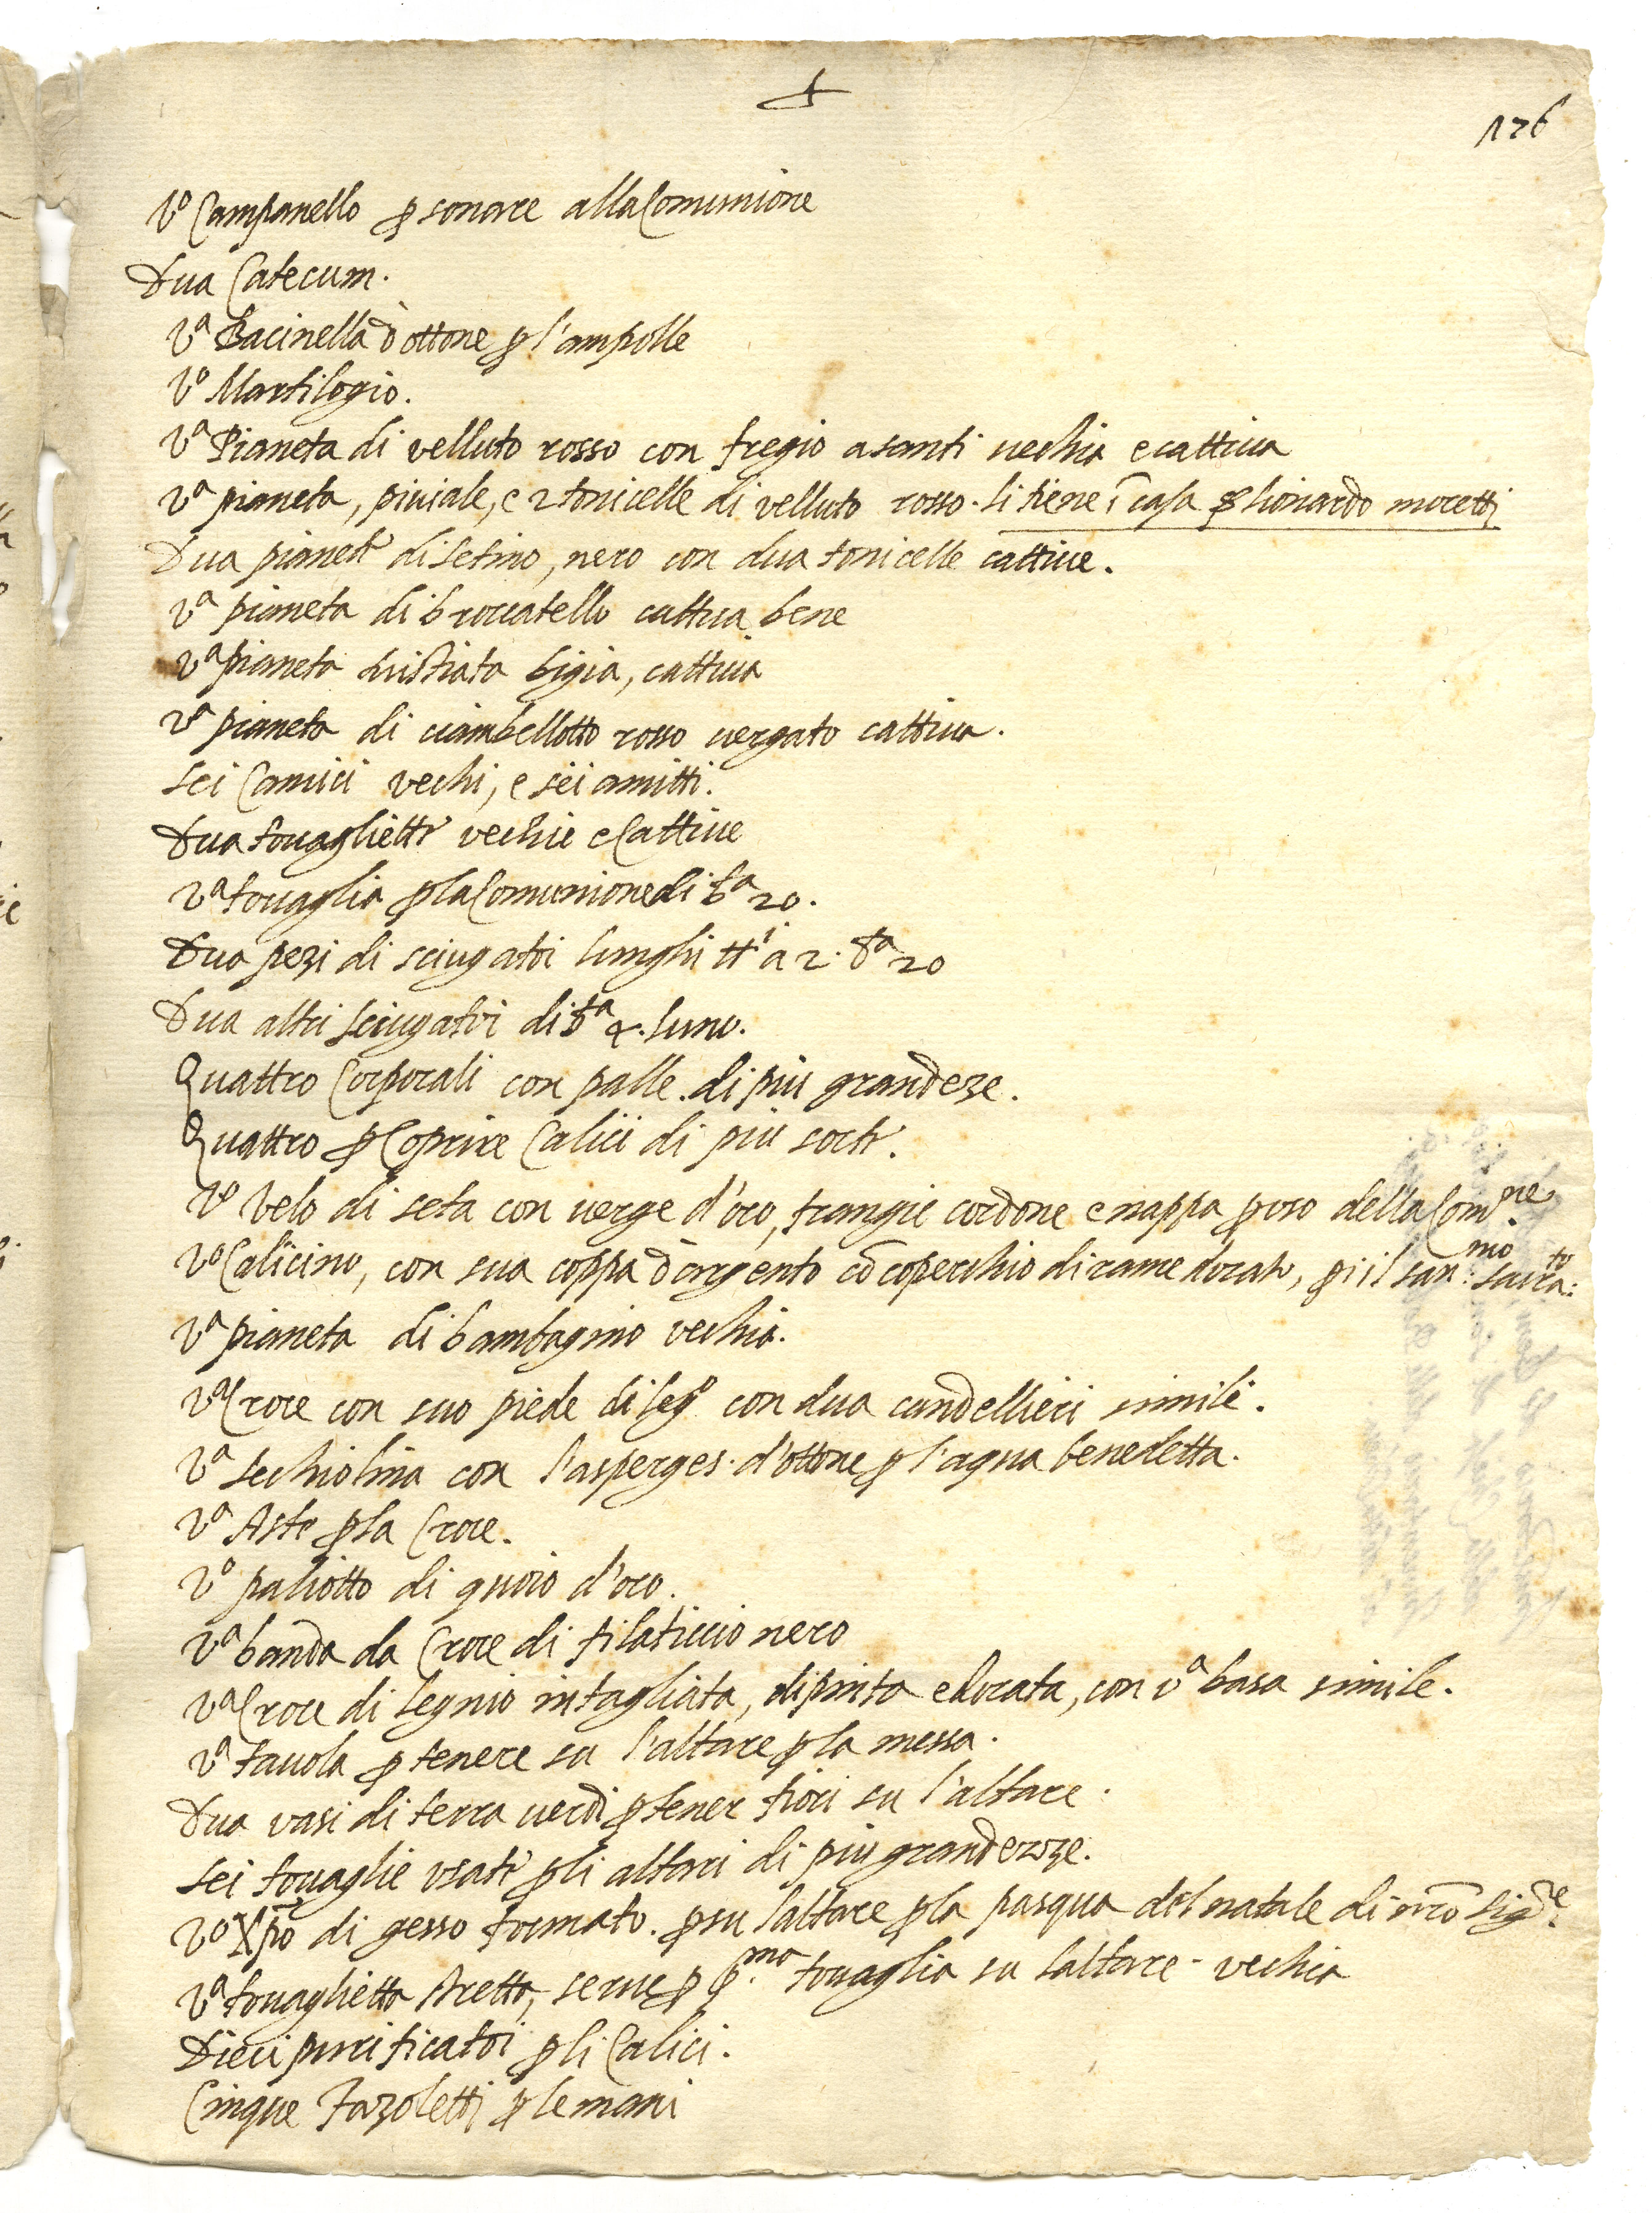 176
Vº Campanello ꝑ sonare alla Comunione
Dua Catecum.
Vª Bacinella d'ottone ꝑ l'ampolle
Vº Martilogio.
Vª Pianeta di velluto rosso con fregio a santi uechia e cattiua
Vª pianeta, piuiale, e 2 tonicelle di velluto rosso. si tiene ĩ casa ꝑ lionardo moretti
Dua pianete di setino, nero con dua tonicelle cattiue.
Vª pianeta di broccatello cattiua bene
Vª pianeta bigia, cattiua
Vª pianeta di ciambellotto rosso uergato cattiua.
Sei Camici vechi, e sei amitti.
Dua touagliette vechie e Cattiue
Vª touaglia ꝑ la Comunione di bª 20.
Dua pezi di sciugatoi lunghi ttⁱ a 2. bª 20
Dua altri sciugatoi di bª 4. luno.
Quattro Corporali con palle. di piu grandeze.
Quattro ꝑ Coprire Calici di piu sorte.
Vº Velo di seta con uerge d'oro, frangie cordone e nappa ꝑ uso della Comⁿᵉ.
Vº Calicino, con sua coppa d'argento cõ coperchio di rame dorato, ꝑ il san:ᵐᵒ sacraᵗᵒ:
Vª pianeta di bambagino vechia.
Vª Croce con suo piede di legº con dua candellieri simili.
Vª Sechiolina con l'asperges. d'ottone ꝑ l'aqua benedetta.
Vª Aste ꝑ la Croce.
Vº paliotto di quoio d'oro.
Vª banda da Croce di filaticcio nero
Vª Croce di legnio intagliata, dipinta e dorata, con vª basa simile.
Vª tauola ꝑ tenere su l'altare ꝑ la messa.
Dua vasi di terra uerdi ꝑ tener fiori su l'altare.
Sei touaglie vsate ꝑ li altari di piu grandezze.
Vº Xp̃o di gesso formato. ꝑ su laltare ꝑ la pasqua del natale di nr̃o Sigʳᵉ.
Vª touaglietta stretta, serue ꝑ pᵐᵃ touaglia su laltare - vechia
Dieci purificatoi ꝑ li Calici.
Cinque Fazoletti ꝑ le mani